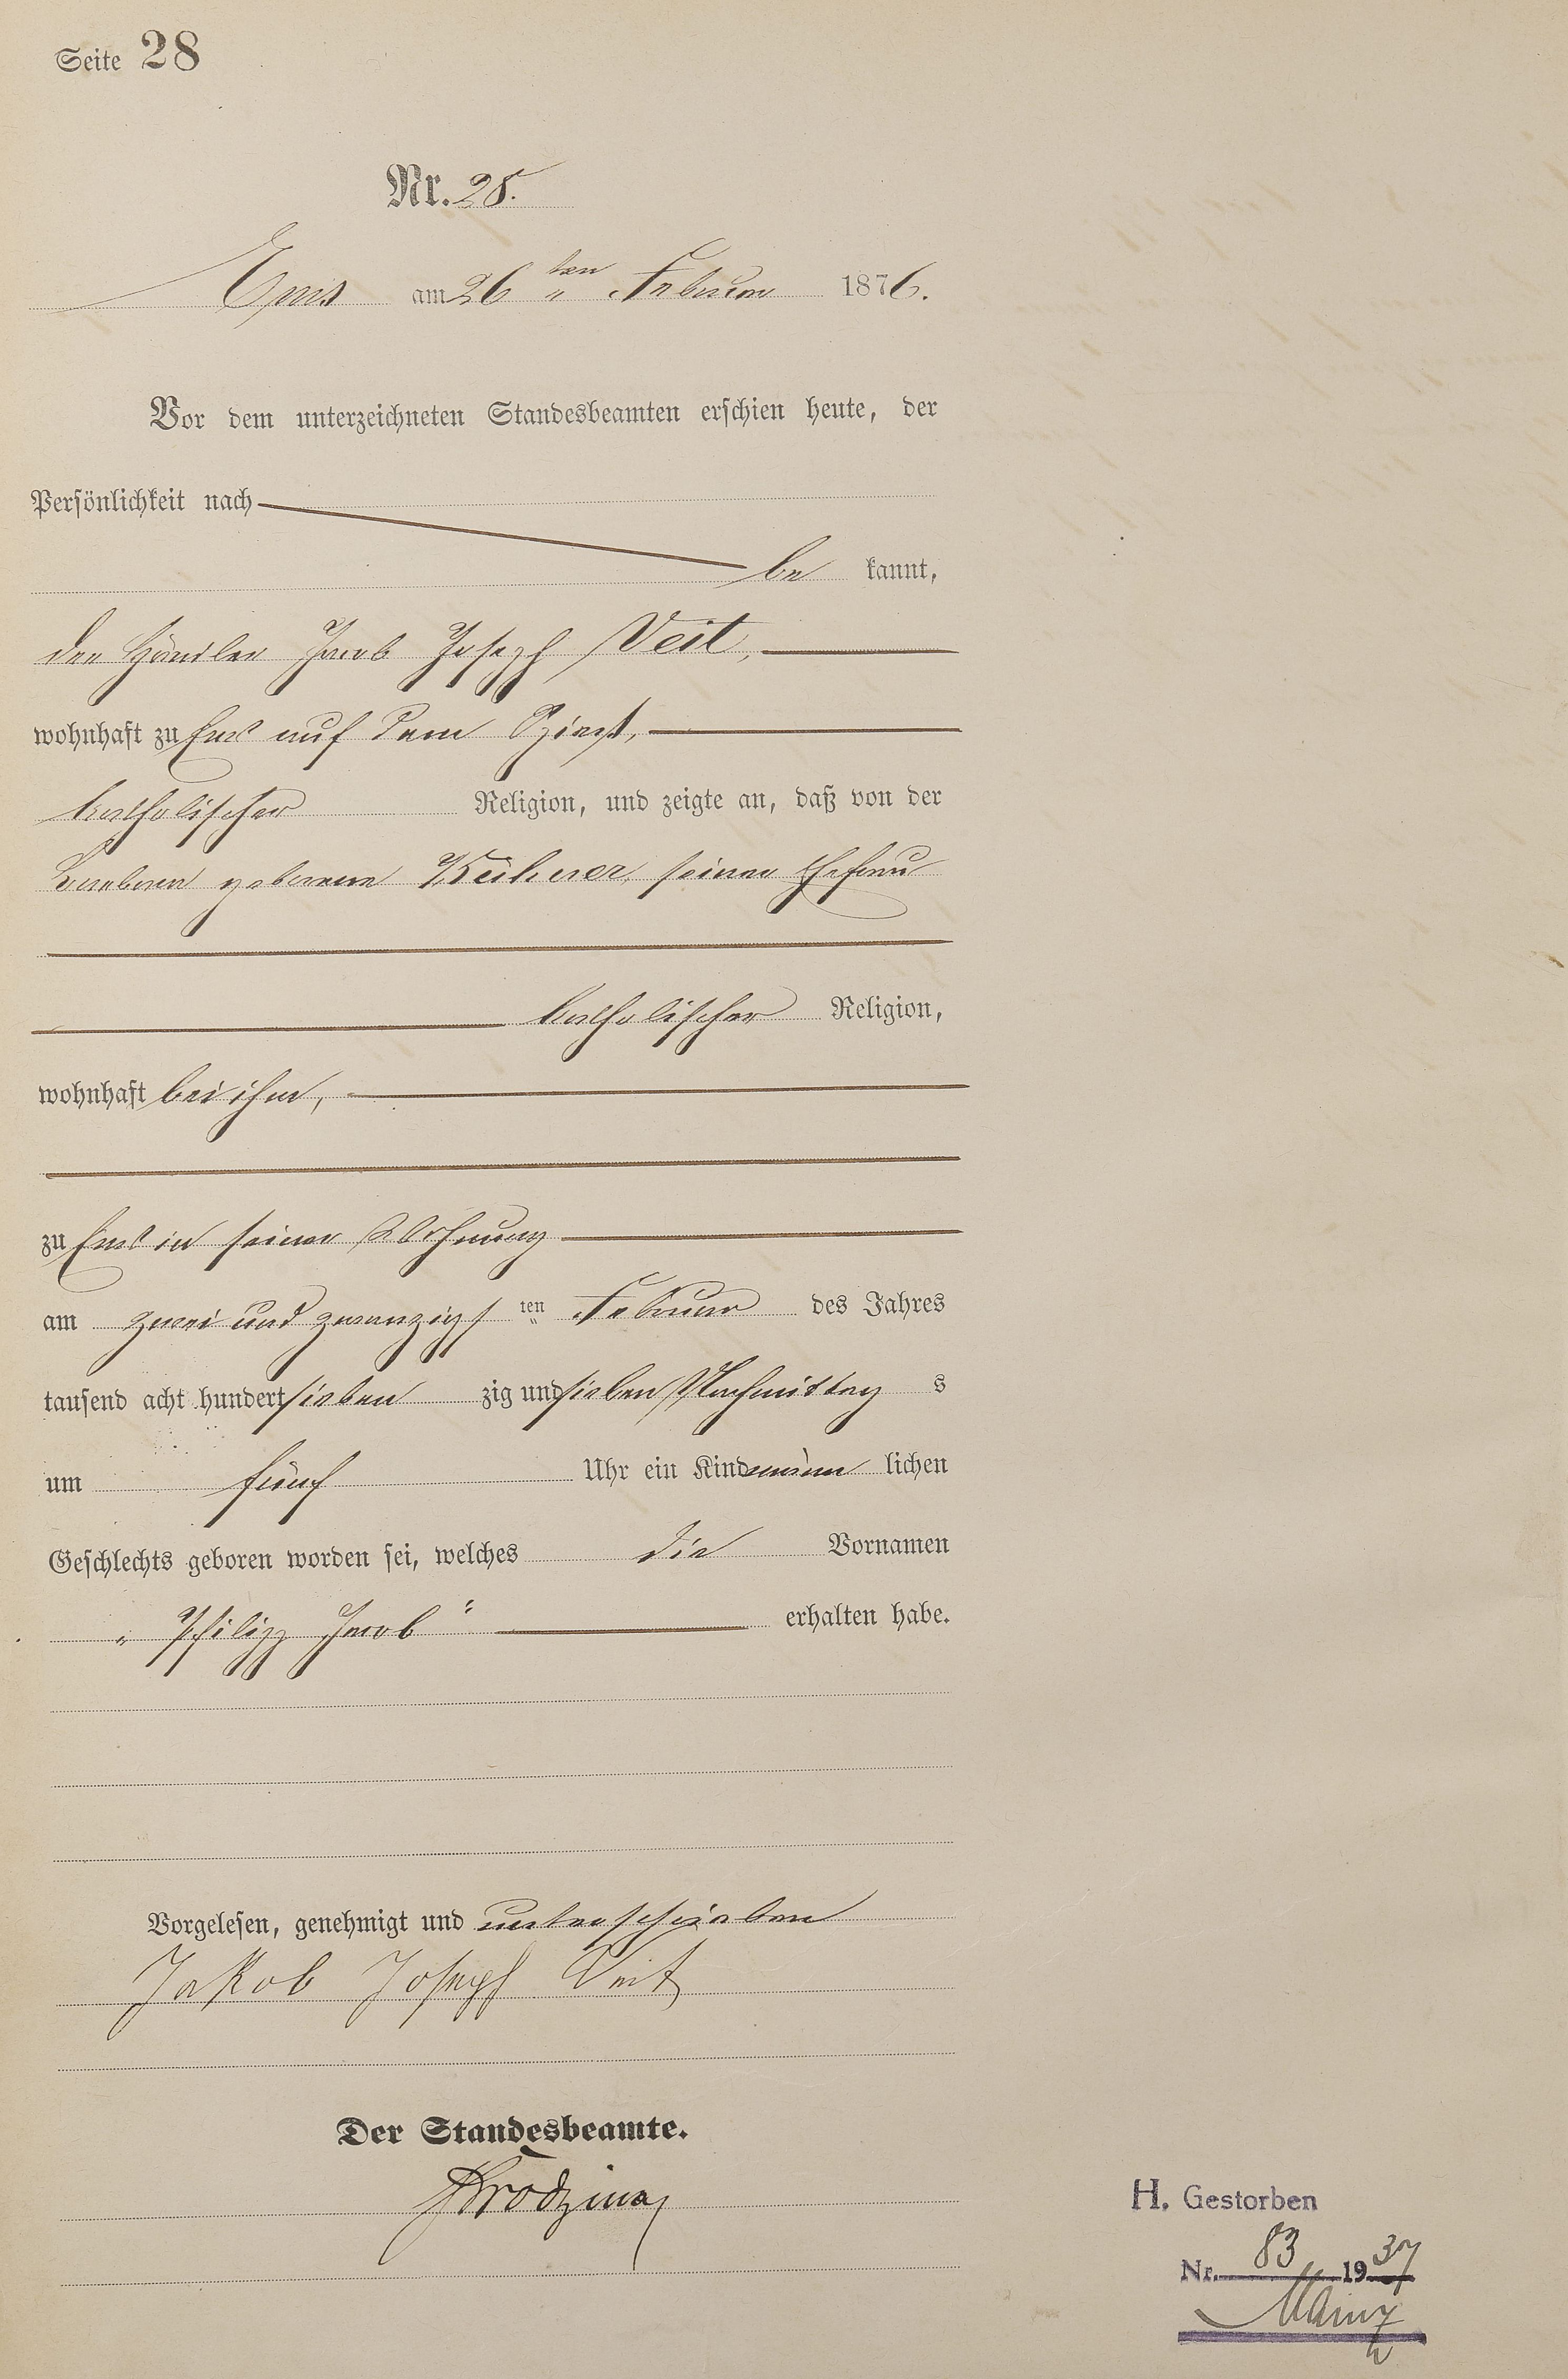 Seite 28
Nr. 28.
Ems am 26 ten Februar 1876.
Vor dem unterzeichneten Standesbeamten erschien heute, der
Persönlichkeit nach
be kannt,
der Händler Jacob Joseph Veit,
wohnhaft zu Ems auf dem Spieß,
katholischer Religion, und zeigte an, daß von der
Barbara geborene Kühner, seiner Ehefrau
katholischer Religion,
wohnhaft bei ihm,
zu Ems in seiner Wohnung
am zwei und zwanzigs ten Februar des Jahres
tausend acht hundert sieben zig und sieben Nachmittag s
um fünf Uhr ein Kind männ lichen
Geschlechts geboren worden sei, welches die Vornamen
„Philipp Jacob“ erhalten habe.
Vorgelesen, genehmigt und unterschrieben
Jakob Joseph Veit
Der Standesbeamte.
H. Gestorben
Nr. 83 1937
Mainz